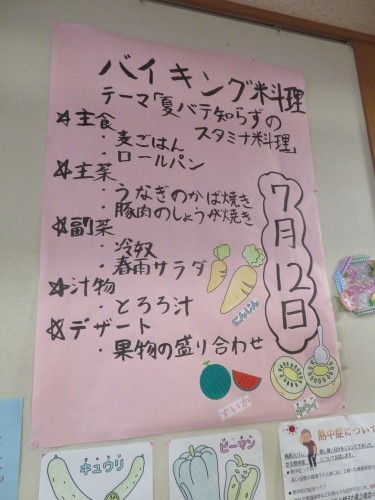 バイキング料理
テーマ「夏バテ知らずの
スタミナ料理」
☆主食
・麦ごはん
・ロールパン
☆主菜
・うなぎのかば焼き
・豚肉のしょうが焼き
☆副菜
・冷奴
・春雨サラダ
☆汁物
・とろろ汁
☆デザート
・果物の盛り合わせ
7月12日
にんじん
すいか
キウイ
キュウリ
ピーマン
熱中症について